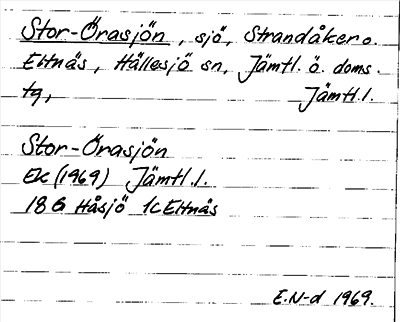 Stor-Örasjön, sjö, Strandåker o.
Eltnäs, Hällesjö sn, Jämtl. ö. doms.
tg, Jämtl.l.
Stor-Örasjön
Ek (1969) Jämtl.l.
18G Håsjö 1c Eltnäs
E.N-d 1969.